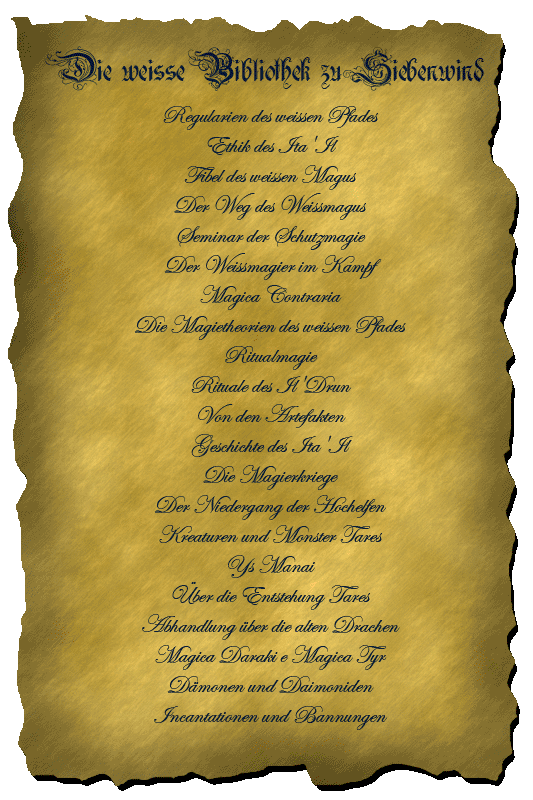 Die weisse Bibliothek zu Siebenwind
Regularien des weissen Pfades
Ethik des Ita'Il
Fibel des weissen Magus
Der Weg des Weissmagus
Seminar der Schutzmagie
Der Weissmagier im Kampf
Magica Contraria
Die Magietheorien des weissen Pfades
Ritualmagie
Rituale des Il'Drun
Von den Artefakten
Geschichte des Ita'Il
Die Magierkriege
Der Niedergang der Hochelfen
Kreaturen und Monster Tares
Ys Manai
Über die Entstehung Tares
Abhandlung über die alten Drachen
Magica Daraki e Magica Tyr
Dämonen und Daimoniden
Incantationen und Bannungen